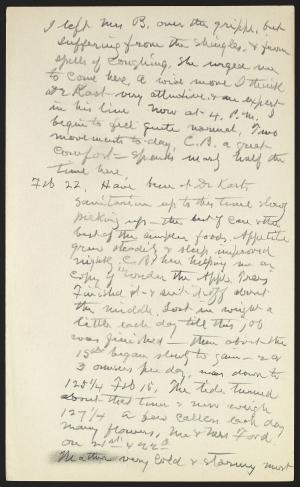 I left Mrs B. over the grippe, but
suffering from the shingles, & from
spells of coughing, She urged me
to come here, a wise move I think
Dr Kast very attentive & an expert
in his line Now at 4. P.M. I
begin to feel quite normal, Two
movements to-day, C.B. a great
comfort – spends nearly half the
time here,
Feb 22, Have been at Dr Kasts
sanitarium up to this time slowly
picking up – the best of care & the
best of the simpler foods, Appetite
grows steadily & sleep improved
nightly, C.B. here helping me on
copy of "Under the Apple Trees
Finished it & sent it off about
the middle, Lost in weight a
little each day till this job
was finished – then about the
15th began slowly to gain – 2 or
3 ounces per day, was down to
125 1/4 Feb 15, The tide turned
about that time & now weigh
127 1/4 a few callers each day
many flowers, Mr & Mrs Ford
on 21st & 22d
Weather very cold & stormy most